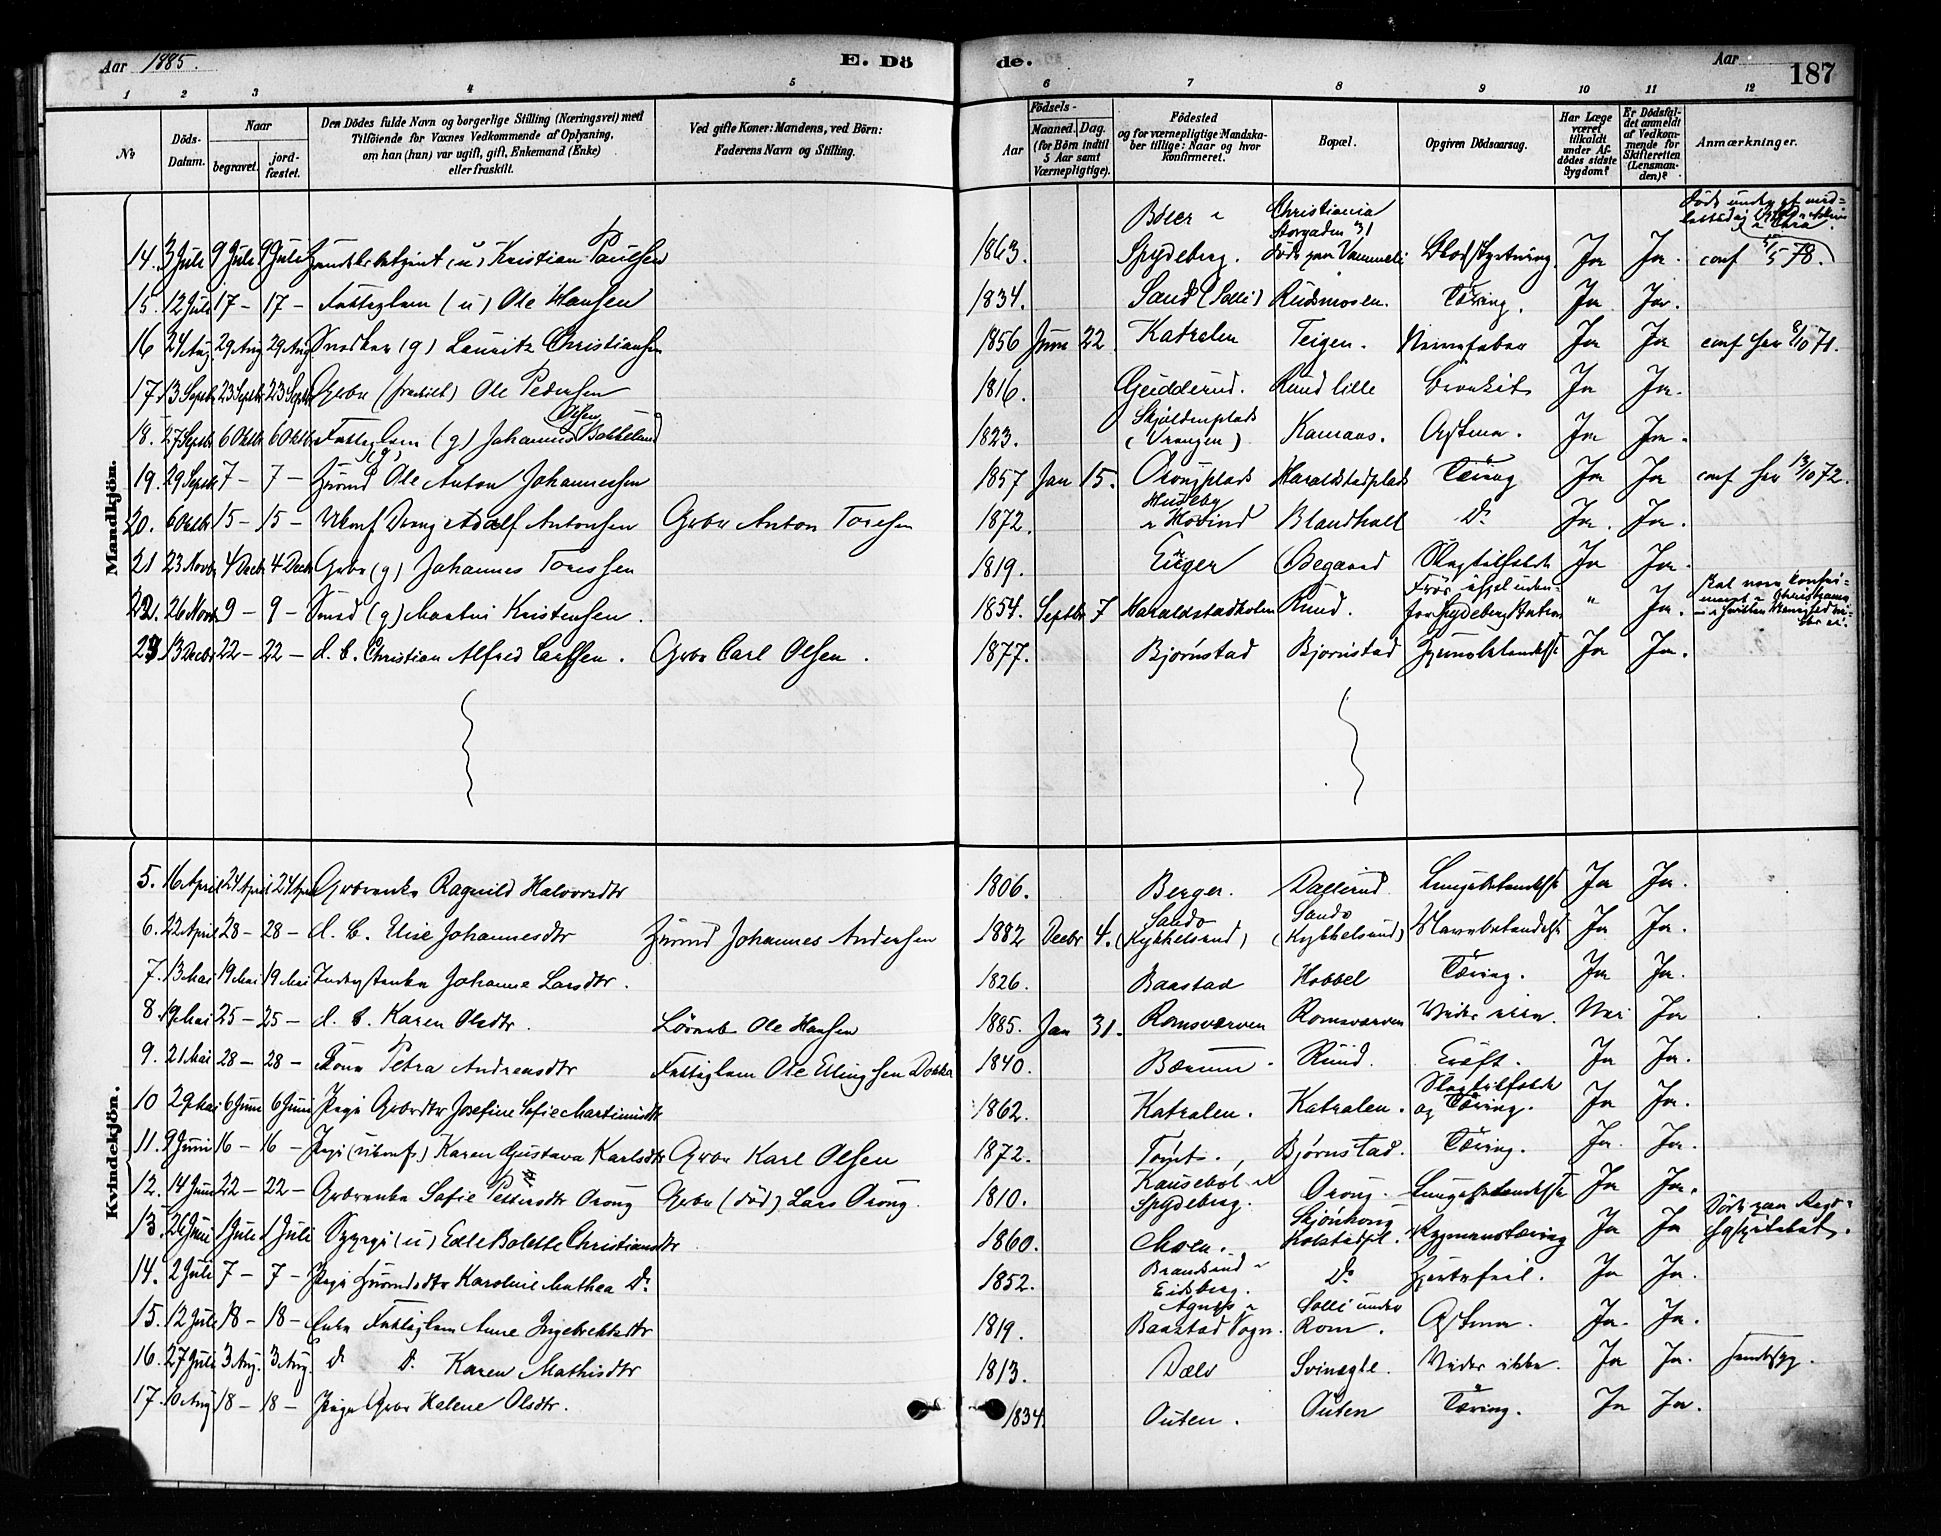 Aar 1885.
E. Dö
de.
Aar
187
1 2 3 4 5 6 7 8 9 10 11 12
No
Döds-Datum.
Naar
begravet.
jord-fæstet.
Den Dödes fulde Navn og borgerlige Stilling (Næringsvei) med
Tilföiende for Voxnes Vedkommende af Oplysning,
om han (hun) var ugift, gift, Enkemand (Enke)
eller fraskilt.
Ved gifte Koner: Mandens, ved Börn:
Faderens Navn og Stilling.
Födsels-
Aar
Maaned. Dag.
(for Börn indtil
5 Aar samt
Værnepligtige).
Födested
og for værnepligtige Mandska-
ber tillige: Naar og hvor
konfirmeret.
Bopæl.
Opgiven Dödsaarsag.
Har Læge
været
tilkaldt
under Af-
dödes sidste
Sygdom?
Er Dödsfal-
det anmeldt
af Vedkom-
mende for
Skifteretten
(Lensman-
den)?
Anmærkninger.
Mandkjön.
14. 3 Juli 9 Juli 9 Juli (u) Kristian Paulsen 1863. Spydeberg. Christiania Storgaden 31 Blodstyrtning Ja Ja. conf 5/5 78.
15. 12 Juli 17 – 17 – Fattiglem (u) Ole Hansen 1834. Sand (Solli) Rudsmosen. Tæring. Ja Ja.
16 24 Aug 29 Aug 29 Aug Snedker (g) Lauritz Christiansen 1856 Juni 22 Katralen Teigen. Nervefeber Ja Ja conf her 8/10 71.
17. 13 Septbr 23 Septbr 23 Septbr Gbr (fraskilt) Ole Pedersen 1816. Geidderud. Rund lille bronkit Ja Ja.
18. 27 Septbr 6 Oktbr 6 Oktbr Fattiglem (g) Johannes Olsen Bakkelund 1823. Skjoldenplads (Vrangen) Kamaas. Astma. Ja Ja.
19. 29 Septbr 7 – 7 – Husmd (g) Ole Anton Johannesen 1857 Jan 15. Orongplads Haraldstadplads Tæring Ja Ja conf her 13/10 72.
20. 6 Oktbr 15 – 15 – Ukonf Dreng Adolf Antonsen Gbr Anton Toresen 1872. Huseby i Hovind Blandhall Do Ja. Ja.
21 23 Novbr 4 Decbr 4 Decbr Gbr (g) Johannes Toresen 1819. Enger Øvegaard Slagtilfælde Ja Ja.
22. 26 Novbr 9 – 9 – Smed (g) Martin Kristensen. 1854. Septbr 7 Haraldstadholm Rund. Frøs ihjel uden-for Spydeberg Station " Ja.
23 13 Decbr 22 – 22 – d. b. Christian Alfred Carlsen. Gbr Carl Olsen. 1877. Bjørnstad Bjørnstad Hjernebetændelse Ja Ja.
Kvindekjön.
5. 16 April 24 April 24 April Gbrenke Ragnild Halvorsdtr 1806. Berger. Dallerud Lungebetændelse Ja Ja.
6. 22 April 28 – 28 – d. b. Elise Johannesdtr Husmd Johannes Andersen 1882 Decbr 4. Sando (Kykkelsrud) Sando (Kykkelsrud) Mavebetændelse Ja Ja.
7. 13 Mai 19 Mai 19 Mai Inderstenke Johanne Larsdtr. 1826. Baastad Hobbel Tæring. Ja Ja.
8. 19 Mai 25 – 25 – d. b. Karen Olsdtr. Ole Hansen 1885. Jan 31. Romsværven Romsværven Vides ikke. Nei Ja
9. 21 Mai 28 – 28 – Kone Petra Andreasdtr Fattiglem Ole Ellingsen Dokka 1840. Bærum. Rund. Ja Ja.
10 29 Mai 6 Juni 6 Juni Pige Gbrdtr Josefine Sofie Martinusdtr 1862. Katralen. Katralen. Slagtilfælde og Tæring. Ja Ja.
11. 9 Juni 16 – 16 – Pige (ukonf.) Karen Gustava Karlsdtr Gbr Karl Olsen 1872. Tomt. Bjørnstad. Tæring. Ja. Ja.
12. 14 Juni 22 – 22 – Gbrenke Sofie Pettersdtr Orong Gbr (død) Lars Orong. 1810. Kausebøl i Spydeberg. Orong. Lungebetændelse Ja Ja.
13. 26 Juni 1 Juli 1 Juli Sypige (u) Edle Bolette Christiansdtr 1860. Moen. Skjönhoug Holstadpl. Rygmarvstæring Ja Ja Døde paa Rigs-hospitalet.
14. 2 Juli 7 – 7 – Pige Husmdsdtr Karoline Mathea Do 1852. Brandsrud i Eidsberg. Do Hjertefeil. Ja Ja.
15. 12 Juli 18 – 18 – Enke Fattiglem Anne Ingebrektsdtr 1819. Baastad Sogn. Solli under Rom. Astma. Ja. Ja.
16. 27 Juli 3 Aug. 3 Aug. do do Karen Mathisdtr 1813. Dælo Svinægle. Vides ikke. Ja Ja.
17. 10 Aug 18 – 18 – Pige Gbr Helene Olsdtr. 1834. Outen. Outen Tæring. Ja Ja.